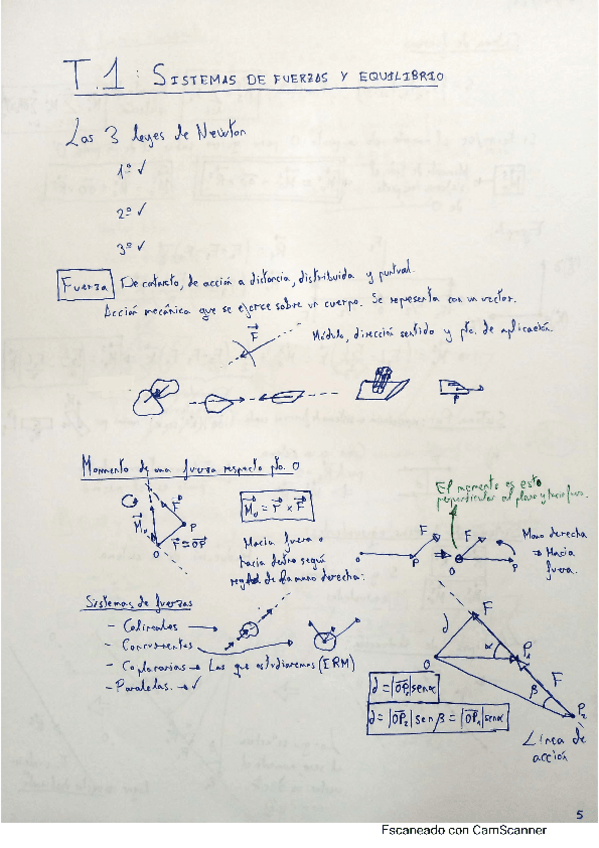 T.1: SISTEMAS DE FUERZAS Y EQUILIBRIO
Las 3 leyes de Newton
1º ✓
2º ✓
3º ✓
Fuerza De contacto, de acción a distancia, distribuida y puntual.
Acción mecánica que se ejerce sobre un cuerpo. Se representa con un vector.
F
Módulo, dirección sentido y pto. de aplicación.
Momento de una fuerza respecto pto. O
El momento es esto
perpendicular al plano y hacia fuera.
M₀ F P O r = OP
M₀ = r × F
Hacia fuera o
hacia dentro según
regla de la mano derecha:
O P F
O F P
Mano derecha
⇒ Hacia
fuera.
Sistemas de fuerzas
- Colineales →
- Concurrentes
- Coplanarias → Las que estudiaremos (ERM)
- Paralelas. → ✓
d F O α P₁ F β P₂
d = |OP₁| sen α
d = |OP₂| sen β = |OP₁| sen α
Línea de
acción
5
Escaneado con CamScanner